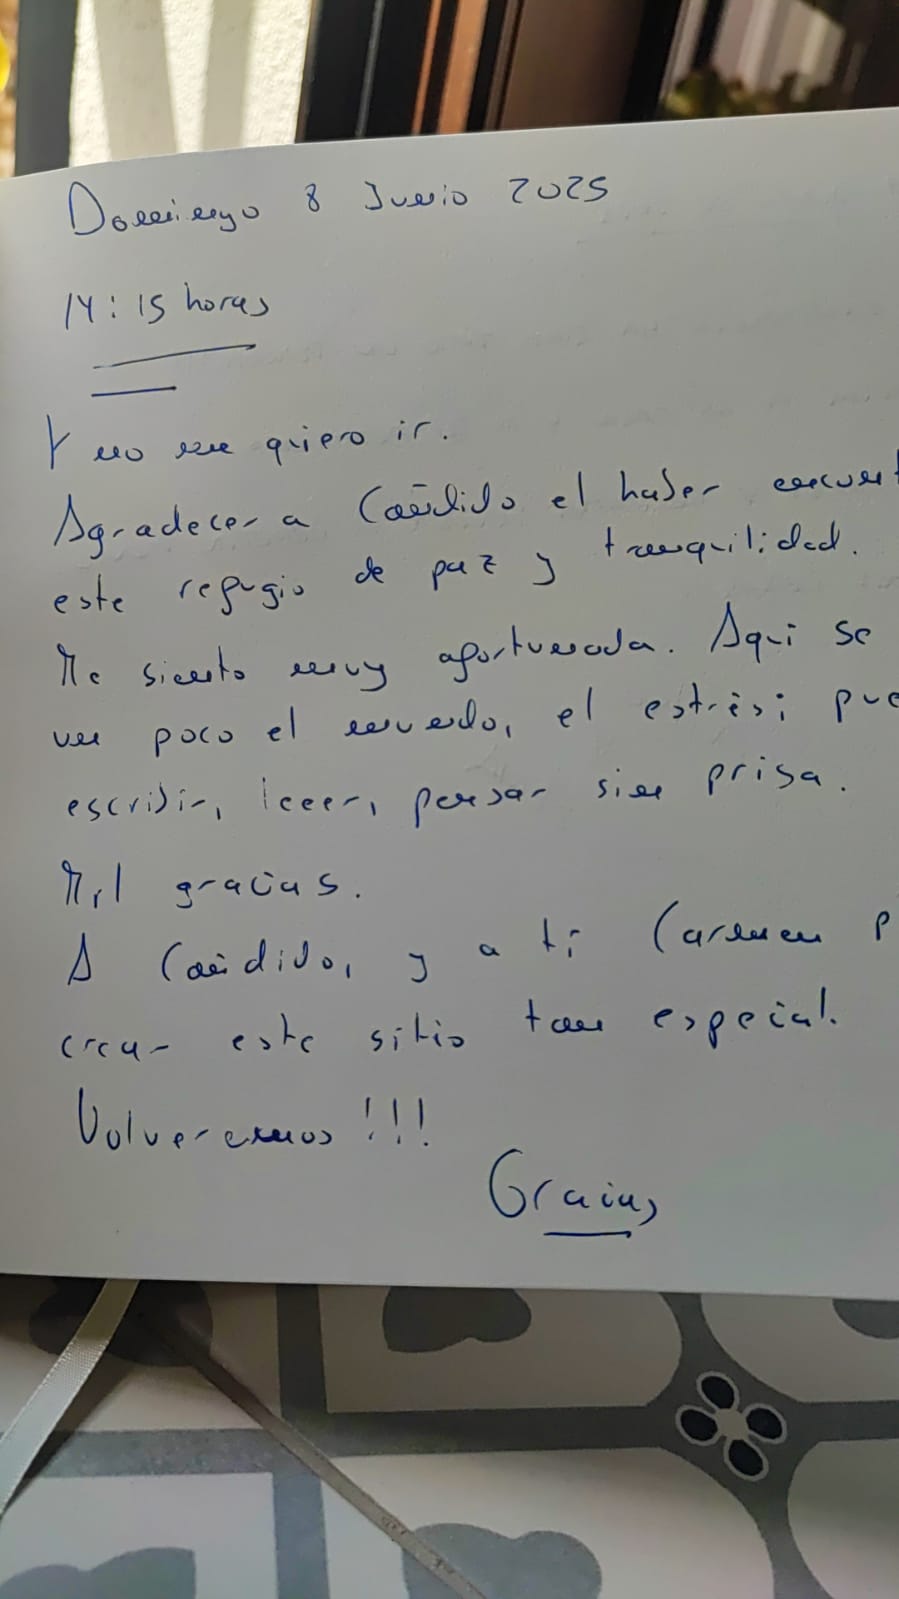 Domingo 8 Junio 2025
14:15 horas
Y no me quiero ir.
Agradecer a Cándido el haber
este refugio de paz y tranquilidad.
Me siento muy afortunada. Aquí se
ve poco el mundo, el estrés;
escribir, leer, pensar sin prisa.
Mil gracias.
A Cándido, y a ti Carmen
crear este sitio tan especial.
Volveremos!!!
Gracias